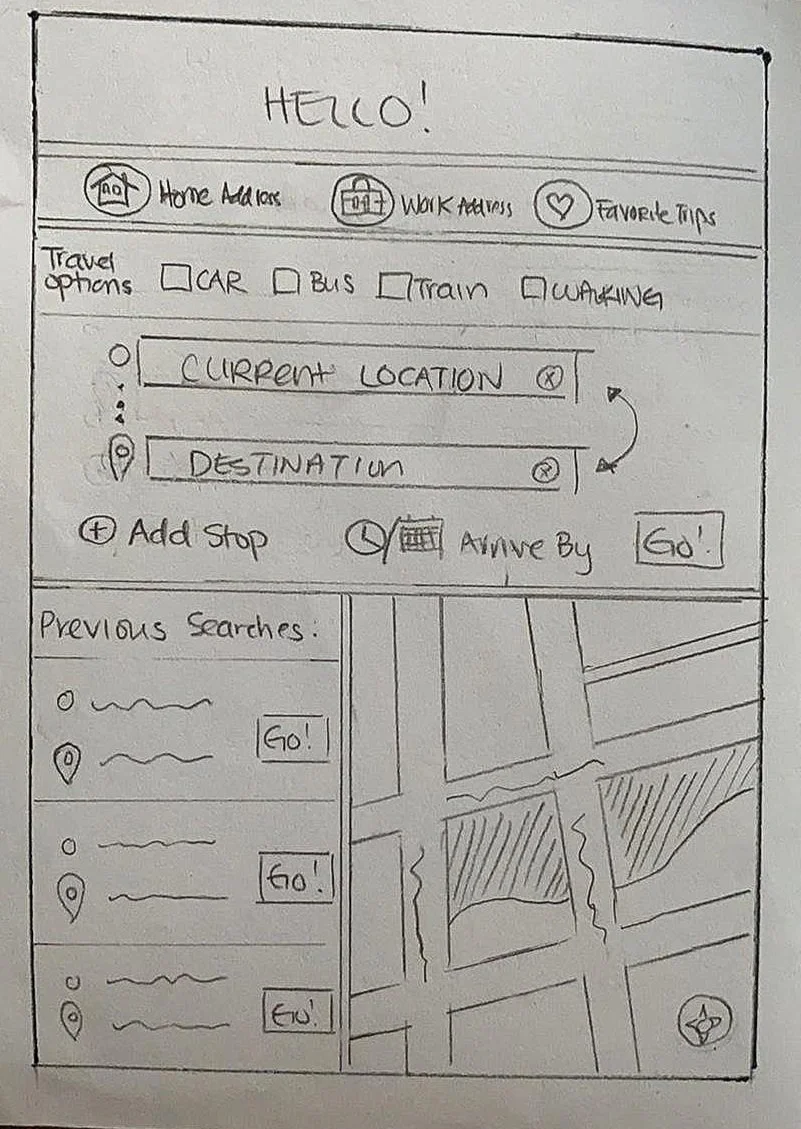 HELLO!
Home Address Work Address Favorite Trips
Travel options CAR Bus Train WALKING
CURRent LOCATION
DESTINATIon
Add Stop Arrive By Go!
Previous Searches:
Go!
Go!
Go!